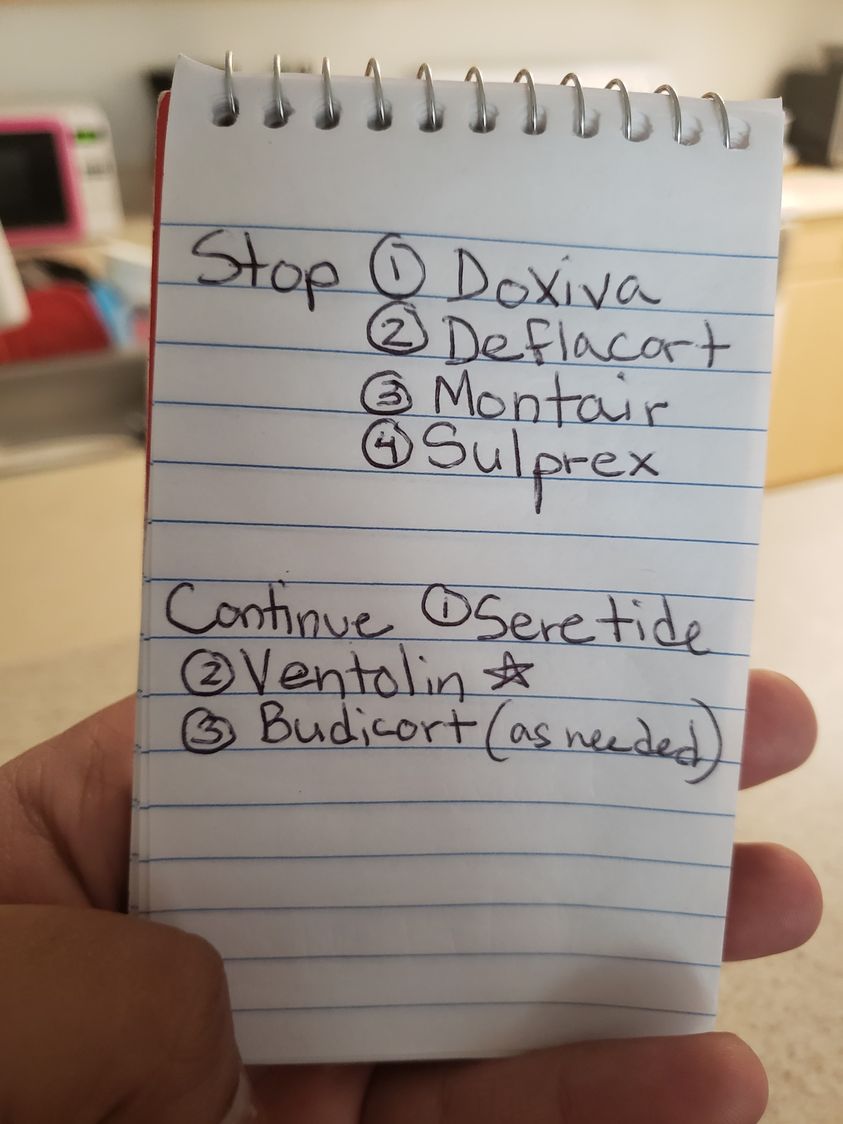 Stop ① Doxiva
② Deflacort
③ Montair
④ Sulprex
Continue ① Seretide
② Ventolin ☆
③ Budicort (as needed)